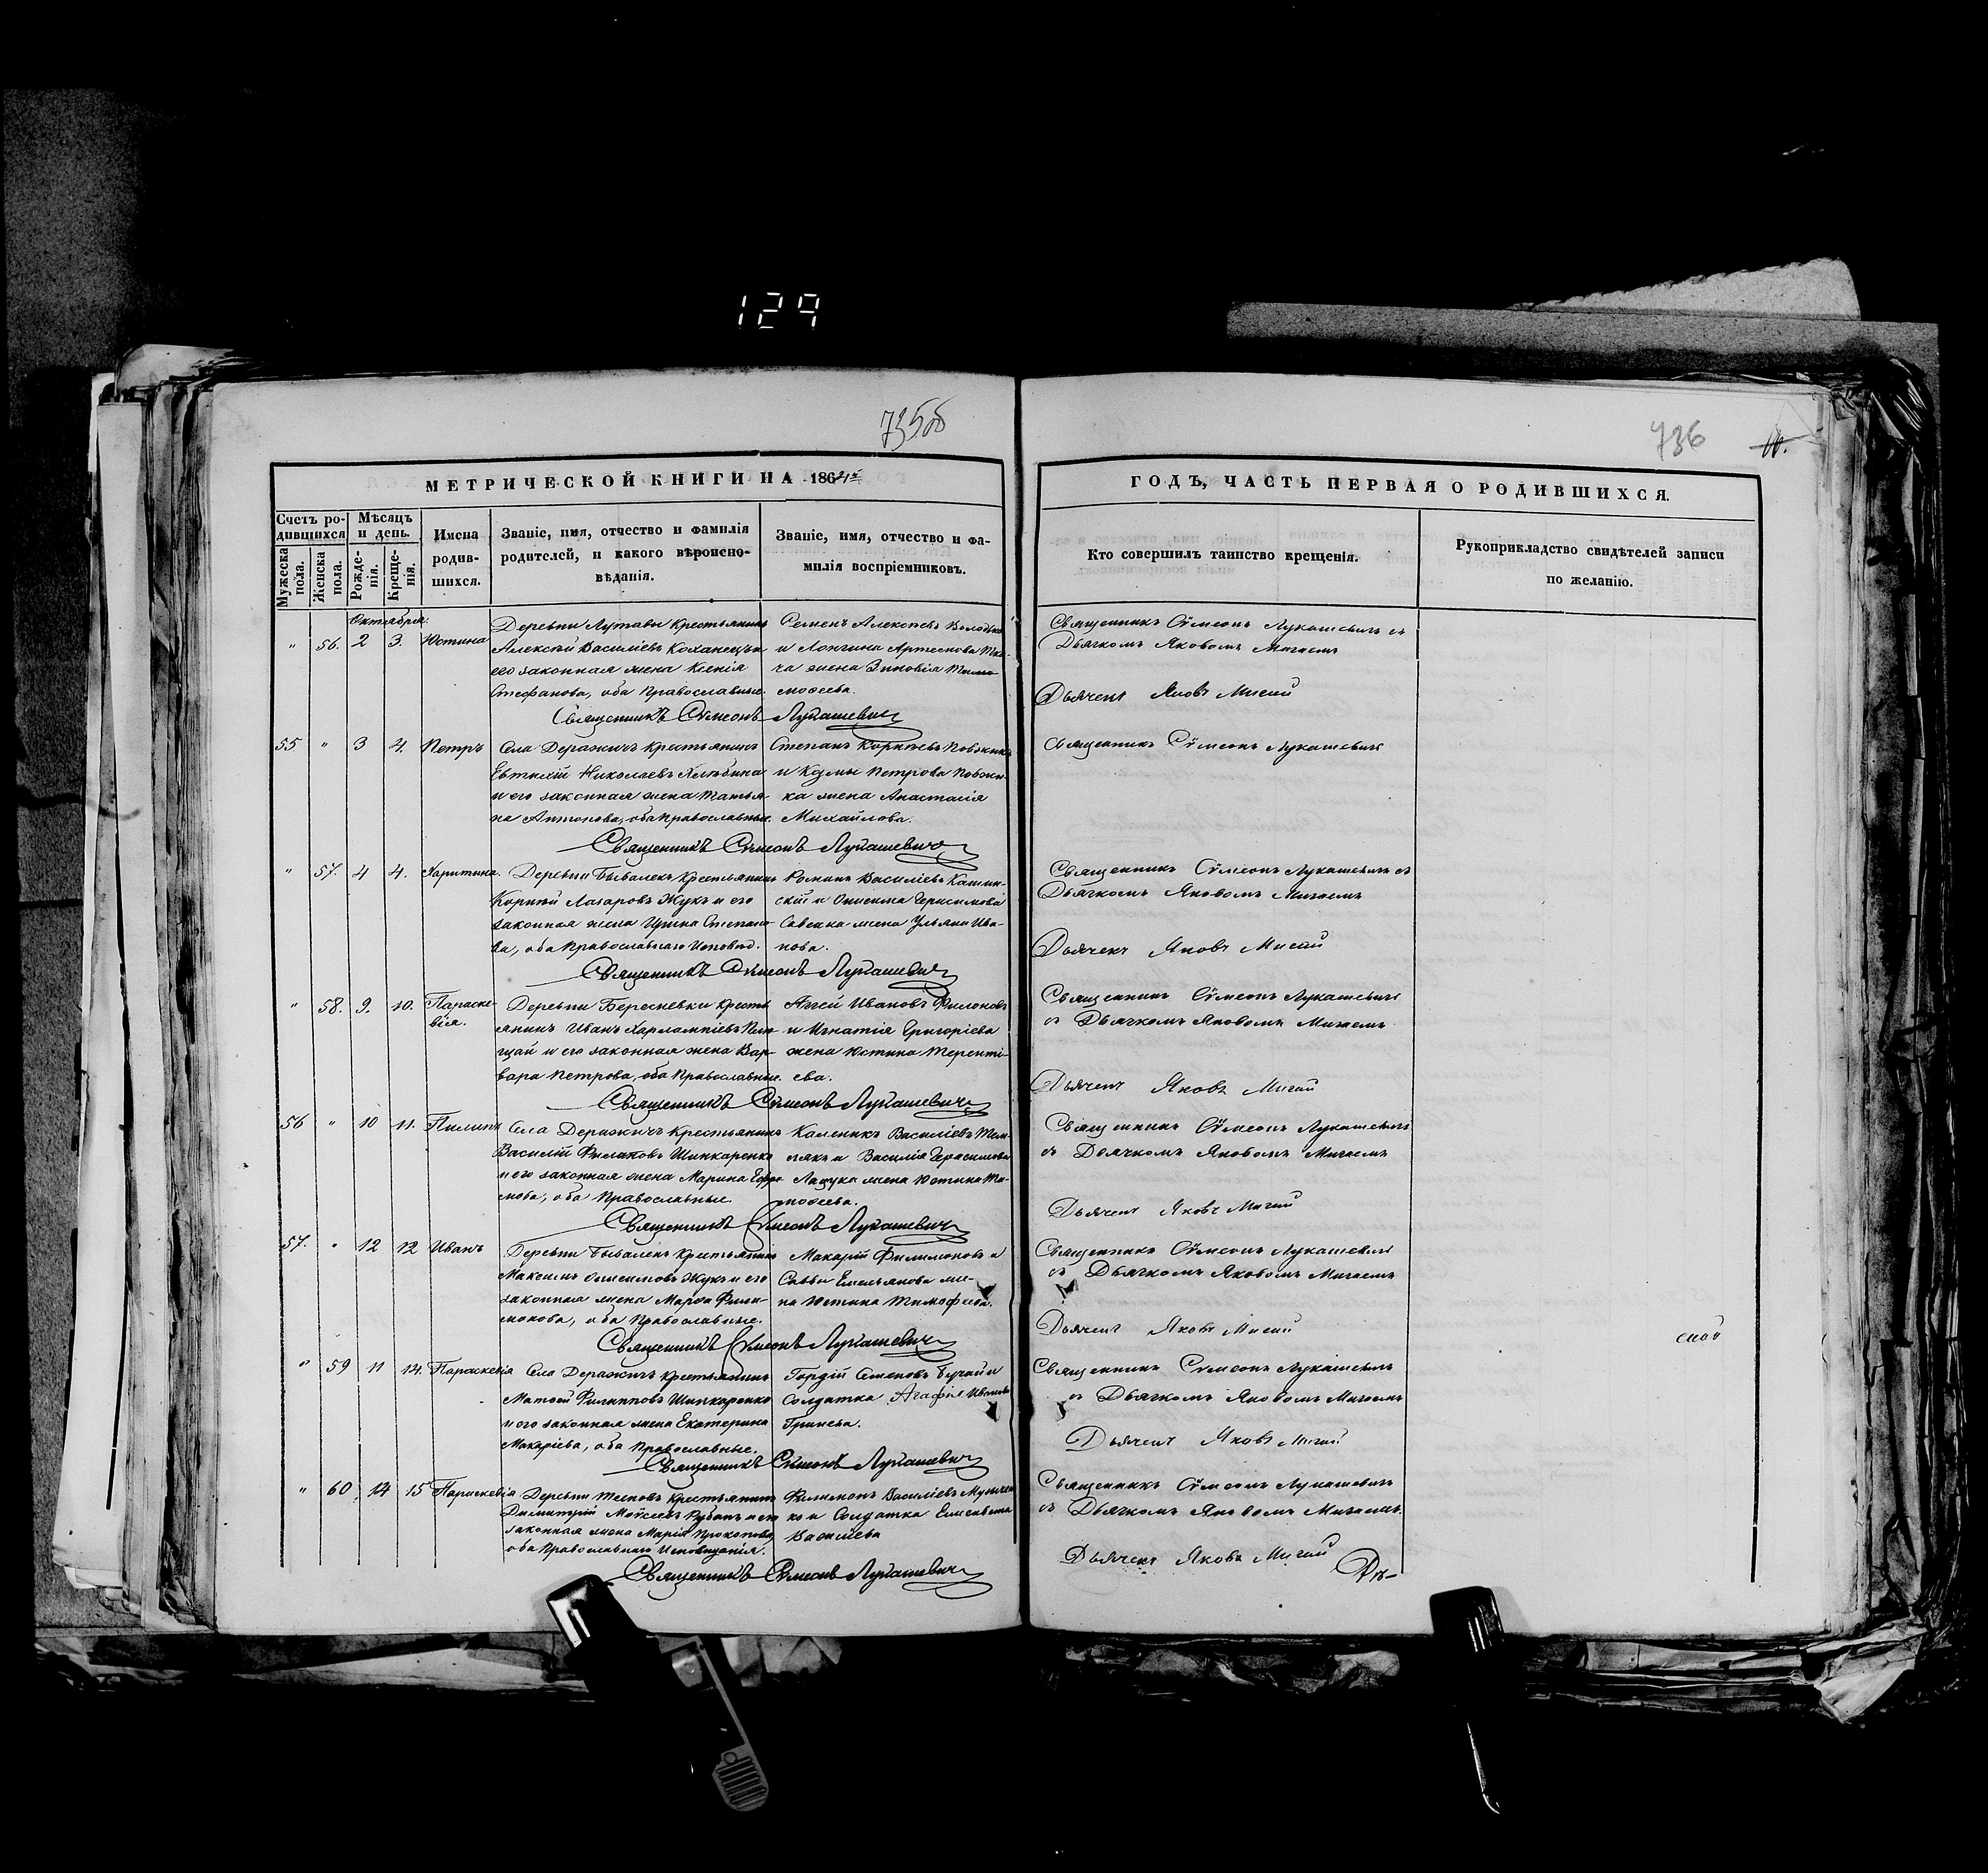 129
735об
736
МЕТРИЧЕСКОЙ КНИГИ НА 1864й
ГОДЪ, ЧАСТЬ ПЕРВАЯ О РОДИВШИХСЯ.
Счетъ родившихся
Мужеска пола.
Женска пола.
Мѣсяцъ и день.
Рожденія.
Крещенія.
Имена родившихся.
Званіе, имя, отчество и фамилія
родителей, и какого вѣроиспо-
вѣданія.
Званіе, имя, отчество и фа-
милія воспріемниковъ.
Кто совершилъ таинство крещенія.
Рукоприкладство свидѣтелей записи
по желанію.
Октября.
" 56. 2 3. Юстина
Деревни Лутавы крестьянинъ
Алексѣй Василіевъ Коханецъ и
его законная жена Ксенія
Стефанова, оба Православные.
Семенъ Алексѣевъ
и Лонгина
жена Зиновія Тимо-
ѳеева.
Священникъ Сѵмеонъ Лукашевичъ съ
Дьячкомъ Яковомъ Мигаемъ
Дьячекъ Яковъ Мигай
Священникъ Сѵмеонъ Лукашевичъ
55 " 3 4. Петръ
Села Деражичъ крестьянинъ
Евтихій Николаевъ
и его законная жена Татья-
на Антонова, оба Православные.
Степанъ Корнѣевъ Повжикъ
и Козмы Петрова Повжи-
ка жена Анастасія
Михайлова.
Священникъ Сѵмеонъ Лукашевичъ
Священникъ Сѵмеонъ Лукашевичъ
" 57. 4 4. Харитина.
Деревни Бывалекъ крестьянинъ
Корнѣй Лазаровъ Жукъ и его
законная жена Ирина Степано-
ва, оба Православнаго Исповѣд.
Романъ Василіевъ
и Онисима Герасимова
Савенка жена Ульяна Ива-
нова.
Священникъ Сѵмеонъ Лукашевичъ съ
Дьячкомъ Яковомъ Мигаемъ
Дьячекъ Яковъ Мигай
Священникъ Сѵмеонъ Лукашевичъ
" 58. 9. 10. Параске-
вія.
Деревни Бересневки кресть-
янинъ Иванъ Харлампіевъ
и его законная жена Вар-
вара Петрова, оба Православные.
Аггей Ивановъ Филоновъ
и Игнатія Григоріева
жена Юстина Теренті-
ева.
Священникъ Сѵмеонъ Лукашевичъ
съ Дьячкомъ Яковомъ Мигаемъ
Дьячекъ Яковъ Мигай
Священникъ Сѵмеонъ Лукашевичъ
56 " 10 11. Пилипъ
Села Деражичъ крестьянинъ
Василій Филиповъ Шинкаренко
и его законная жена Марина
оба Православные.
Каленикъ Василіевъ
и Василія Герасимова
Лацука жена Юстина Ти-
моѳеева.
Священникъ Сѵмеонъ Лукашевичъ
съ Дьячкомъ Яковомъ Мигаемъ
Дьячекъ Яковъ Мигай
Священникъ Сѵмеонъ Лукашевичъ
57. " 12 12 Иванъ
Деревни Бывалекъ крестьянинъ
Максимъ Онисимовъ Жукъ и его
законная жена Марѳа Фили-
монова, оба Православные.
Макарій Филимоновъ и
Саввы Емельянова же-
на Юстина Тимофеева.
Священникъ Сѵмеонъ Лукашевичъ
съ Дьячкомъ Яковомъ Мигаемъ
Дьячекъ Яковъ Мигай
Священникъ Сѵмеонъ Лукашевичъ
" 59 11 14. Параскевія
Села Деражичъ крестьянинъ
Матвей Филипповъ Шинкаренко
и его законная жена Екатерина
Макаріева, оба Православные.
Гордій Семеновъ Бугай и
Солдатка Агафія Иванова
Гринева.
Священникъ Сѵмеонъ Лукашевичъ
съ Дьячкомъ Яковомъ Мигаемъ
Дьячекъ Яковъ Мигай
Священникъ Сѵмеонъ Лукашевичъ
" 60 14 15 Параскевія
Деревни крестьянинъ
Димитрій Мойсеевъ Рубанъ и его
законная жена Марія Прокопова,
оба Православнаго Исповѣданія.
Филимонъ Василіевъ
и Солдатка Елисавета
Василіева
Священникъ Сѵмеонъ Лукашевичъ
съ Дьячкомъ Яковомъ Мигаемъ.
Дьячекъ Яковъ Мигай
Священникъ Сѵмеонъ Лукашевичъ